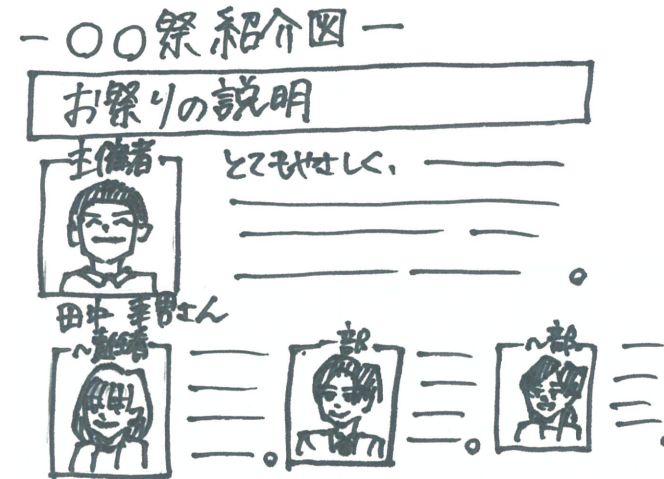 ー〇〇祭紹介図ー
お祭りの説明
主催者
とてもやさしく、
田中 幸男さん
〜部
〜部